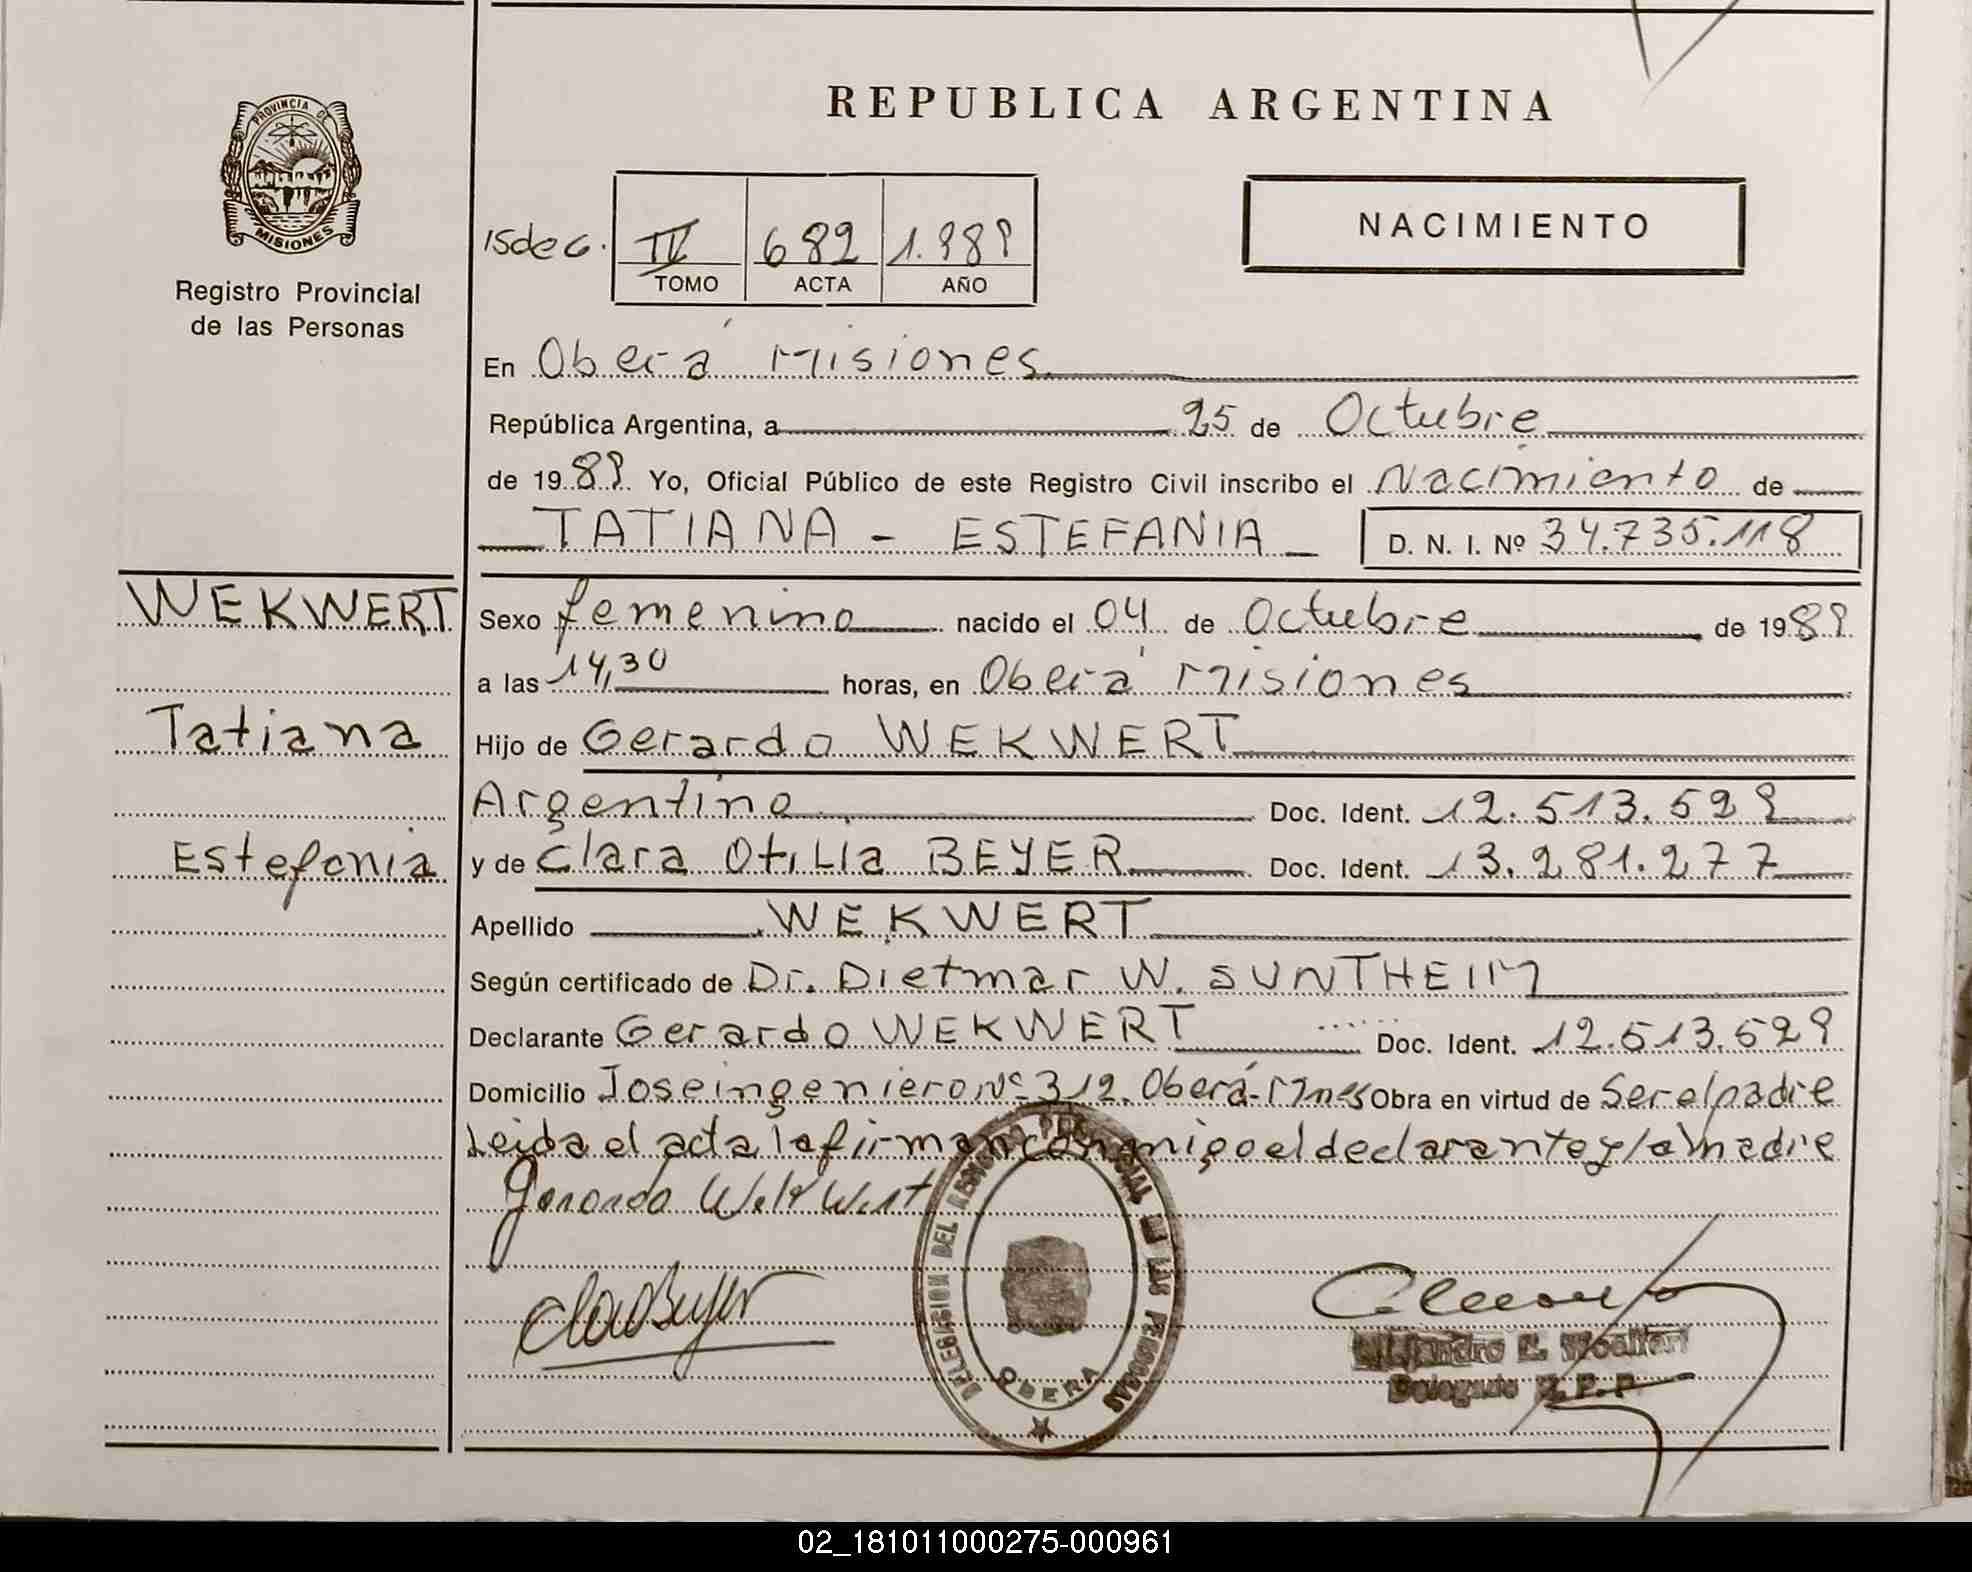 REPUBLICA ARGENTINA
PROVINCIA DE
MISIONES
Registro Provincial
de las Personas
NACIMIENTO
IV 682 1.989
TOMO ACTA AÑO
En Oberá Misiones
República Argentina, a 25 de Octubre
de 1989 Yo, Oficial Público de este Registro Civil inscribo el Nacimiento de
TATIANA - ESTEFANIA D. N. I. Nº 34.735.118
WEKWERT
Tatiana
Estefania
Sexo femenino nacido el 04 de Octubre de 1989
a las 14,30 horas, en Oberá Misiones
Hijo de Gerardo WEKWERT
Argentino Doc. Ident. 12.513.529
y de Clara Otilia BEYER Doc. Ident. 13.281.277
Apellido WEKWERT
Según certificado de Dr. Dietmar W. SUNTHEIM
Declarante Gerardo WEKWERT Doc. Ident. 12.513.529
Domicilio Jose ingeniero Nº 312. Oberá-Mnes Obra en virtud de Ser el padre
Leida el acta la firman conmigo el declarante y la madre
Gerardo Wekwert
Clara Beyer
DELEGACION DEL REGISTRO PROVINCIAL DE LAS PERSONAS
OBERA
Delegado R. P. P.
02_181011000275-000961